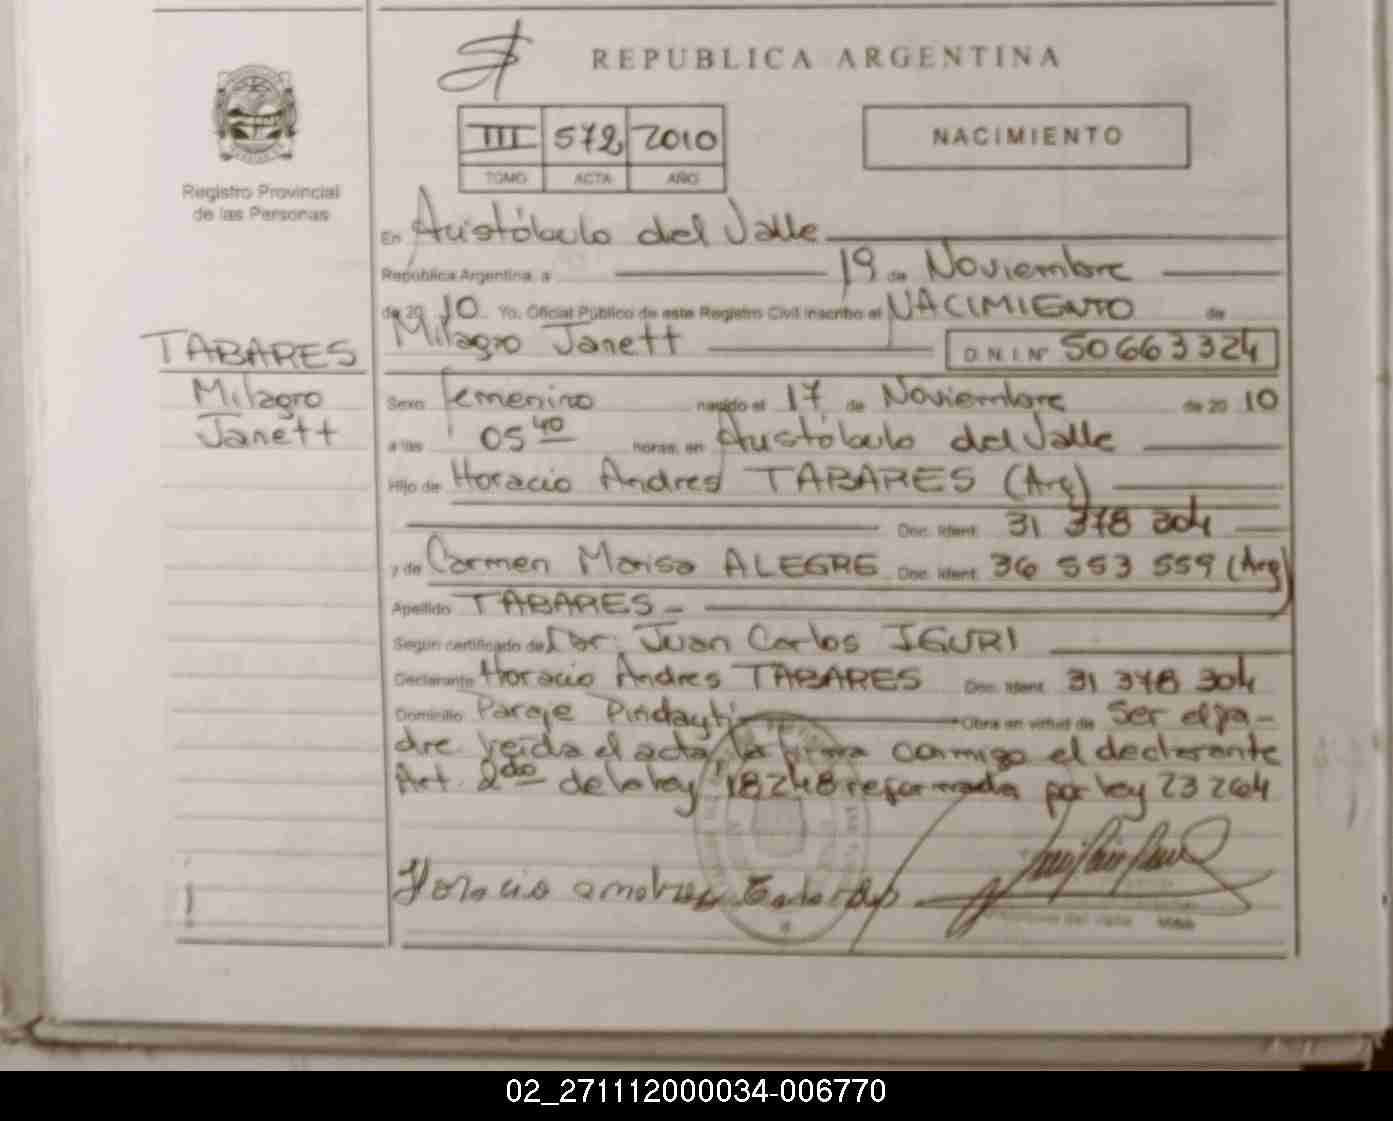 REPUBLICA ARGENTINA
III 572 2010
TOMO ACTA AÑO
NACIMIENTO
Registro Provincial
de las Personas
TABARES
Milagro
Janett
En Aristóbulo del Valle
República Argentina, a 19 de Noviembre
de 20 10 Yo, Oficial Público de este Registro Civil inscribo el NACIMIENTO de
Milagro Janett D.N.I. Nº 50663324
Sexo femenino nacido el 17 de Noviembre de 20 10
a las 05 40 horas, en Aristóbulo del Valle
Hijo de Horacio Andres TABARES (Arg)
Doc. Ident. 31 378 304
y de Carmen Marisa ALEGRE Doc. Ident. 36 553 559 (Arg)
Apellido TABARES
Según certificado de Dr. Juan Carlos IGURI
Declarante Horacio Andres TABARES Doc. Ident. 31 378 304
Domicilio Paraje Pindayti Obra en virtud de Ser el pa-
dre leída el acta, la firma conmigo el declarante
Art. 2do de la ley 18248 reformada por ley 23264
Horacio
02_271112000034-006770